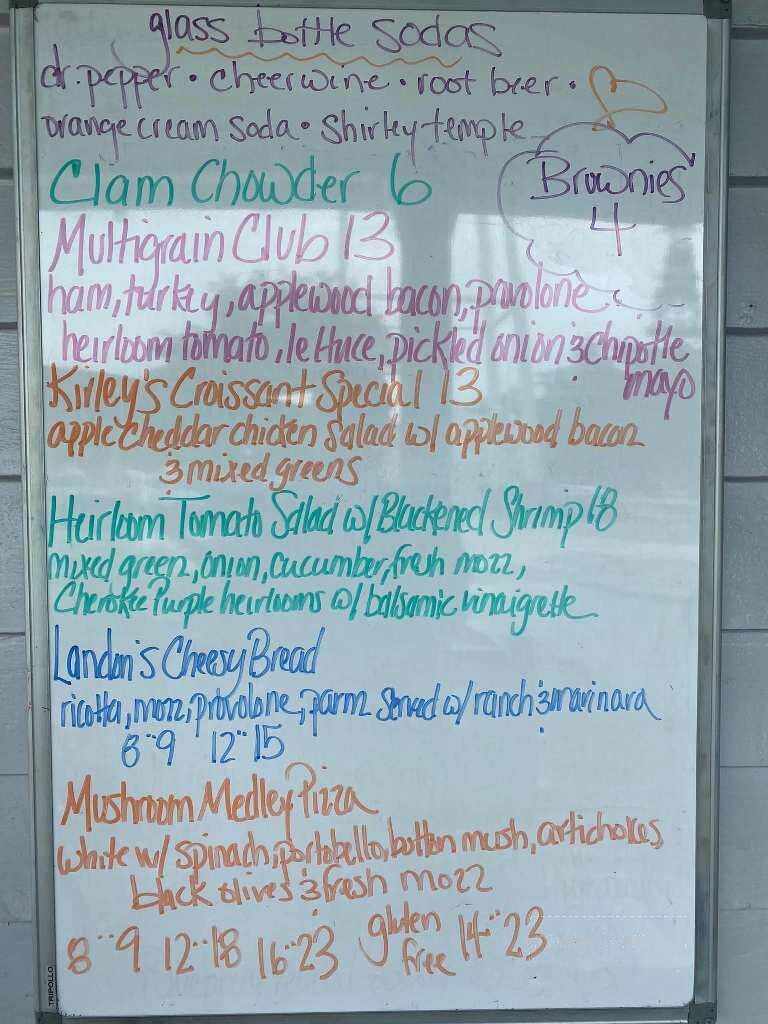 glass bottle sodas
dr. pepper • cheerwine • root beer •
orange cream soda • Shirley temple
Clam Chowder 6
Brownies
4
Multigrain Club 13
ham, turkey, applewood bacon, provolone
heirloom tomato, lettuce, pickled onion & Chipotle
mayo
Kirley's Croissant Special 13
apple cheddar chicken salad w/ applewood bacon
& mixed greens
Heirloom Tomato Salad w/ Blackened Shrimp 18
mixed green, onion, cucumber, fresh mozz,
Cherokee Purple heirlooms w/ balsamic vinaigrette
Landon's Cheesy Bread
ricotta, mozz, provolone, parm served w/ ranch & marinara
8" 9 12" 15
Mushroom Medley Pizza
white w/ spinach, portobello, button mush, artichokes
black olives & fresh mozz
8" 9 12" 18 16" 23 gluten free 14" 23
TRIPOLLO